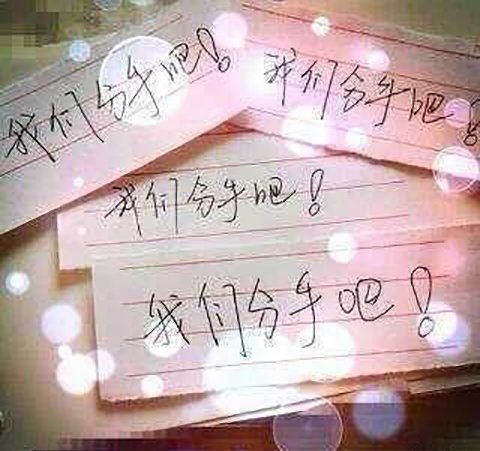 我们分手吧！
我们分手吧！
我们分手吧！
我们分手吧！